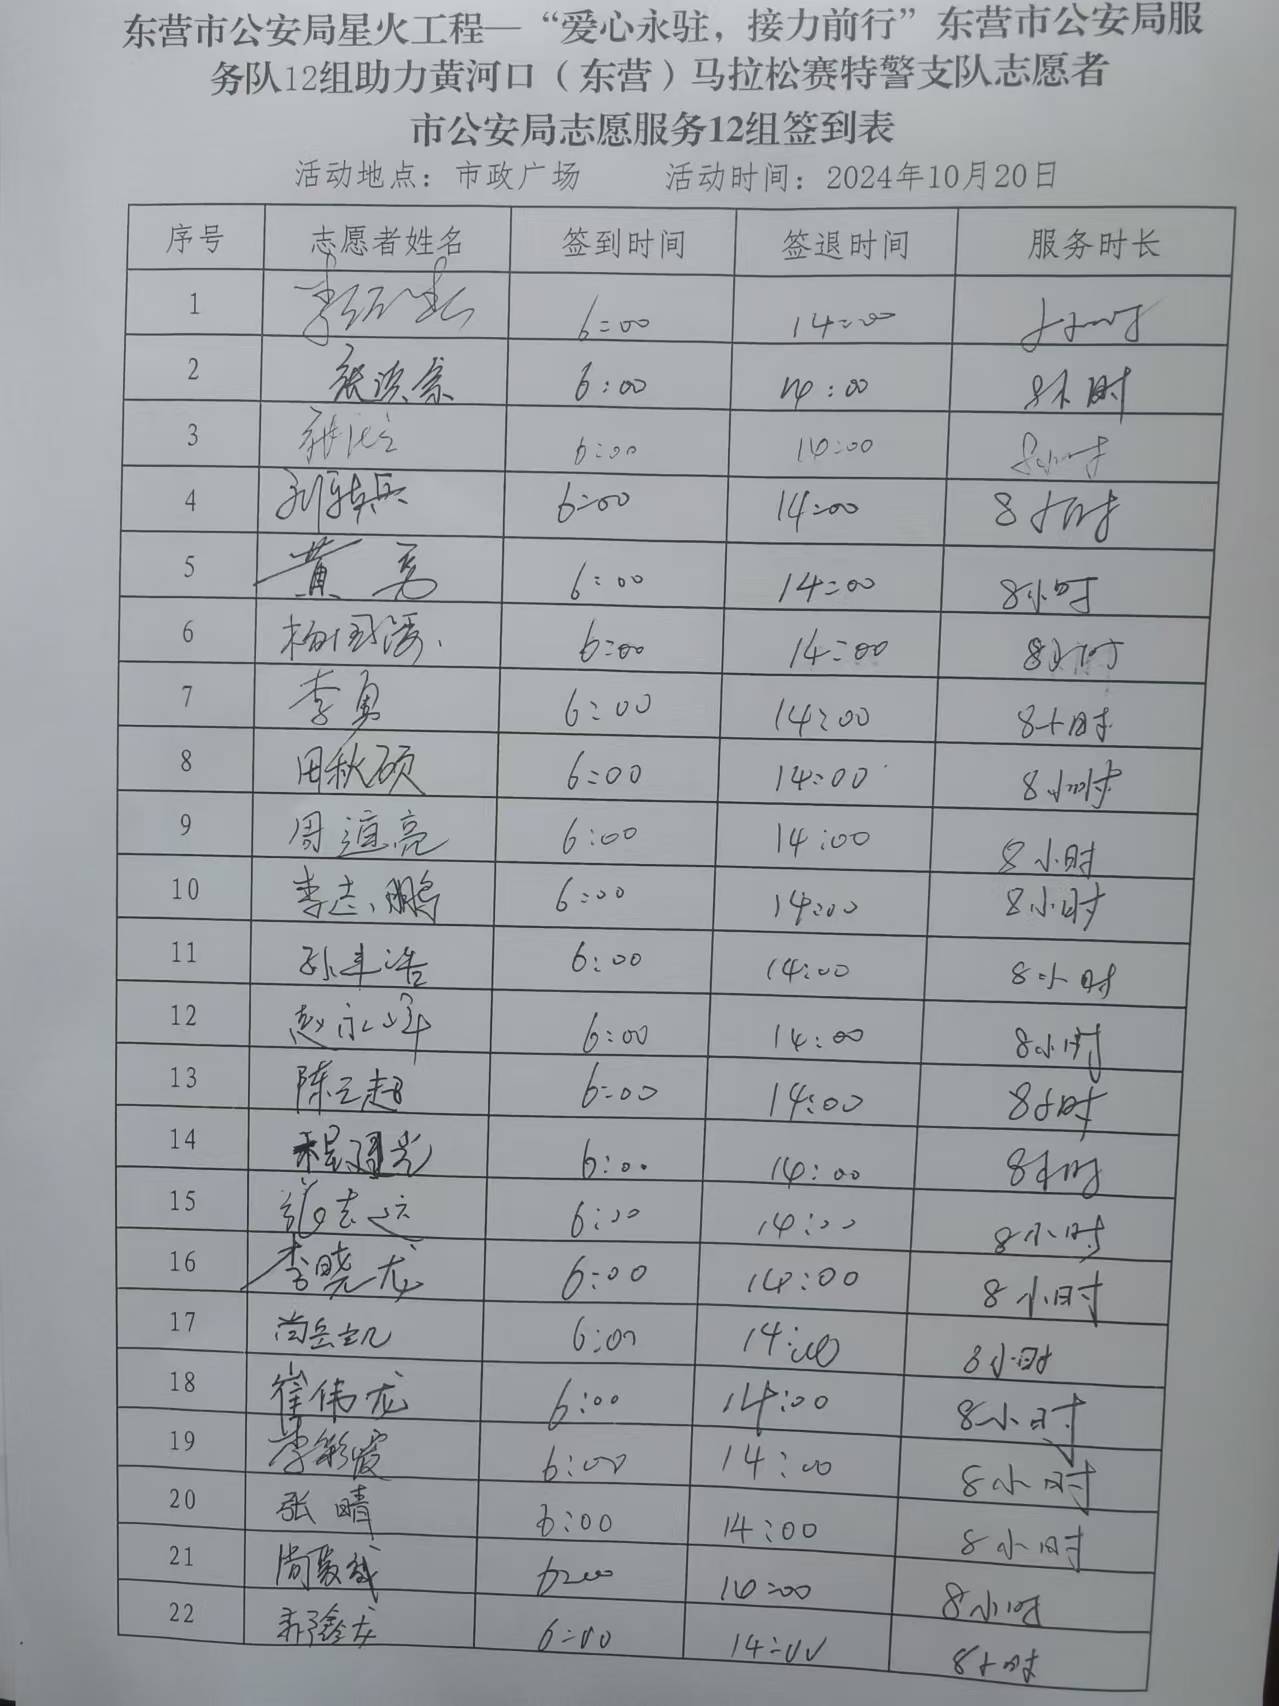 东营市公安局星火工程—“爱心永驻，接力前行”东营市公安局服
务队12组助力黄河口（东营）马拉松赛特警支队志愿者
市公安局志愿服务12组签到表
活动地点：市政广场 活动时间：2024年10月20日
序号 志愿者姓名 签到时间 签退时间 服务时长
1 6:00 14:00
2 6:00 14:00 8小时
3 6:00 14:00 8小时
4 6:00 14:00 8小时
5 黄勇 6:00 14:00 8小时
6 6:00 14:00 8小时
7 李勇 6:00 14:00 8小时
8 田秋硕 6:00 14:00 8小时
9 周道亮 6:00 14:00 8小时
10 李志鹏 6:00 14:00 8小时
11 孙丰浩 6:00 14:00 8小时
12 赵永峰 6:00 14:00 8小时
13 陈云超 6:00 14:00 8小时
14 6:00 14:00 8小时
15 6:00 14:00 8小时
16 李晓龙 6:00 14:00 8小时
17 尚岳凯 6:00 14:00 8小时
18 崔伟龙 6:00 14:00 8小时
19 李彩霞 6:00 14:00 8小时
20 张晴 6:00 14:00 8小时
21 6:00 14:00 8小时
22 6:00 14:00 8小时